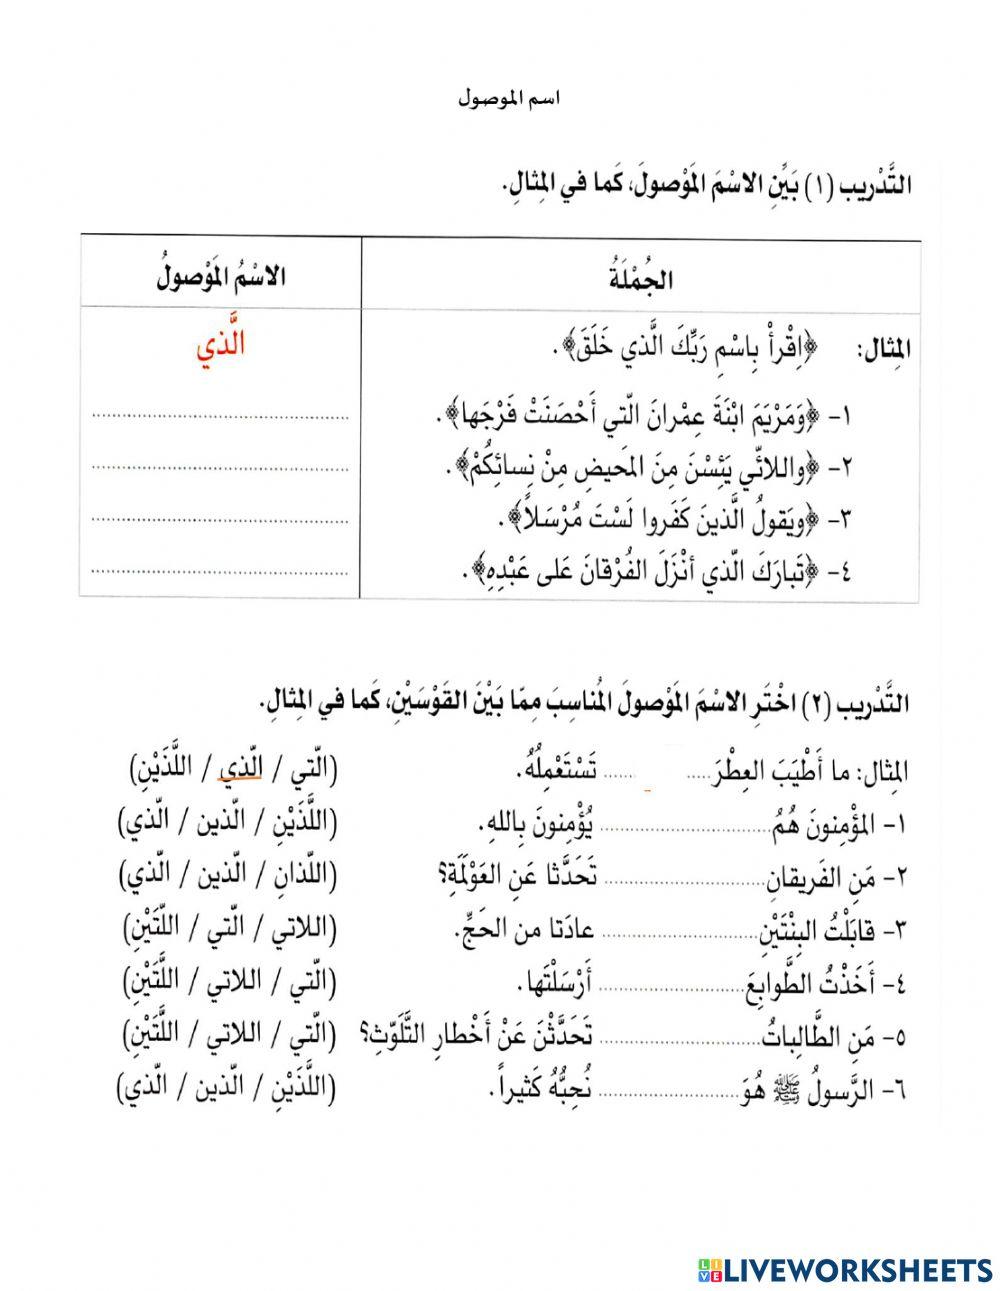 اسم الموصول
التَّدْريب (١) بَيِّنِ الاسْمَ المَوْصولَ، كَما في المِثالِ.
الجُمْلَةُ
الاسْمُ المَوْصولُ
المِثال: ﴿اِقْرأْ بِاسْمِ رَبِّكَ الَّذي خَلَقَ﴾.
الَّذي
١- ﴿وَمَرْيَمَ ابْنَةَ عِمْرانَ الّتي أَحْصَنَتْ فَرْجَها﴾.
٢- ﴿واللائّي يَئِسْنَ مِنَ المَحيضِ مِنْ نِسائِكُمْ﴾.
٣- ﴿ويَقولُ الَّذينَ كَفَروا لَسْتَ مُرْسَلاً﴾.
٤- ﴿تَبارَكَ الّذي أنْزَلَ الفُرْقانَ عَلى عَبْدِهِ﴾.
التَّدْريب (٢) اخْتَرِ الاسْمَ المَوْصولَ المُناسِبَ مِمّا بَيْنَ القَوْسَيْنِ، كَما في المِثالِ.
المِثال: ما أَطْيَبَ العِطْرَ..... ...... تَسْتَعْمِلُهُ. (الّتي / الّذي / اللَّذَيْنِ)
١- المؤْمِنونَ هُمُ.............................. يُؤْمِنونَ بِاللهِ. (اللَّذَيْنِ / الّذين / الّذي)
٢- مَنِ الفَريقانِ.............................. تَحَدَّثا عَنِ العَوْلَمَةِ؟ (اللّذانِ / الّذين / الّذي)
٣- قابَلْتُ البِنْتَيْنِ.............................. عادَتا من الحَجِّ. (اللاتي / الّتي / اللّتَيْنِ)
٤- أَخَذْتُ الطَّوابِعَ.............................. أَرْسَلْتَها. (الّتي / اللاتي / اللَّتَيْنِ)
٥- مَنِ الطَّالِباتُ.............................. تَحَدَّثْنَ عَنْ أَخْطارِ التَّلَوّثِ؟ (الّتي / اللاتي / اللَّتَيْنِ)
٦- الرَّسولُ ﷺ هُوَ.............................. نُحِبُّهُ كَثيراً. (اللَّذَيْنِ / الّذين / الّذي)
LIVE LIVEWORKSHEETS